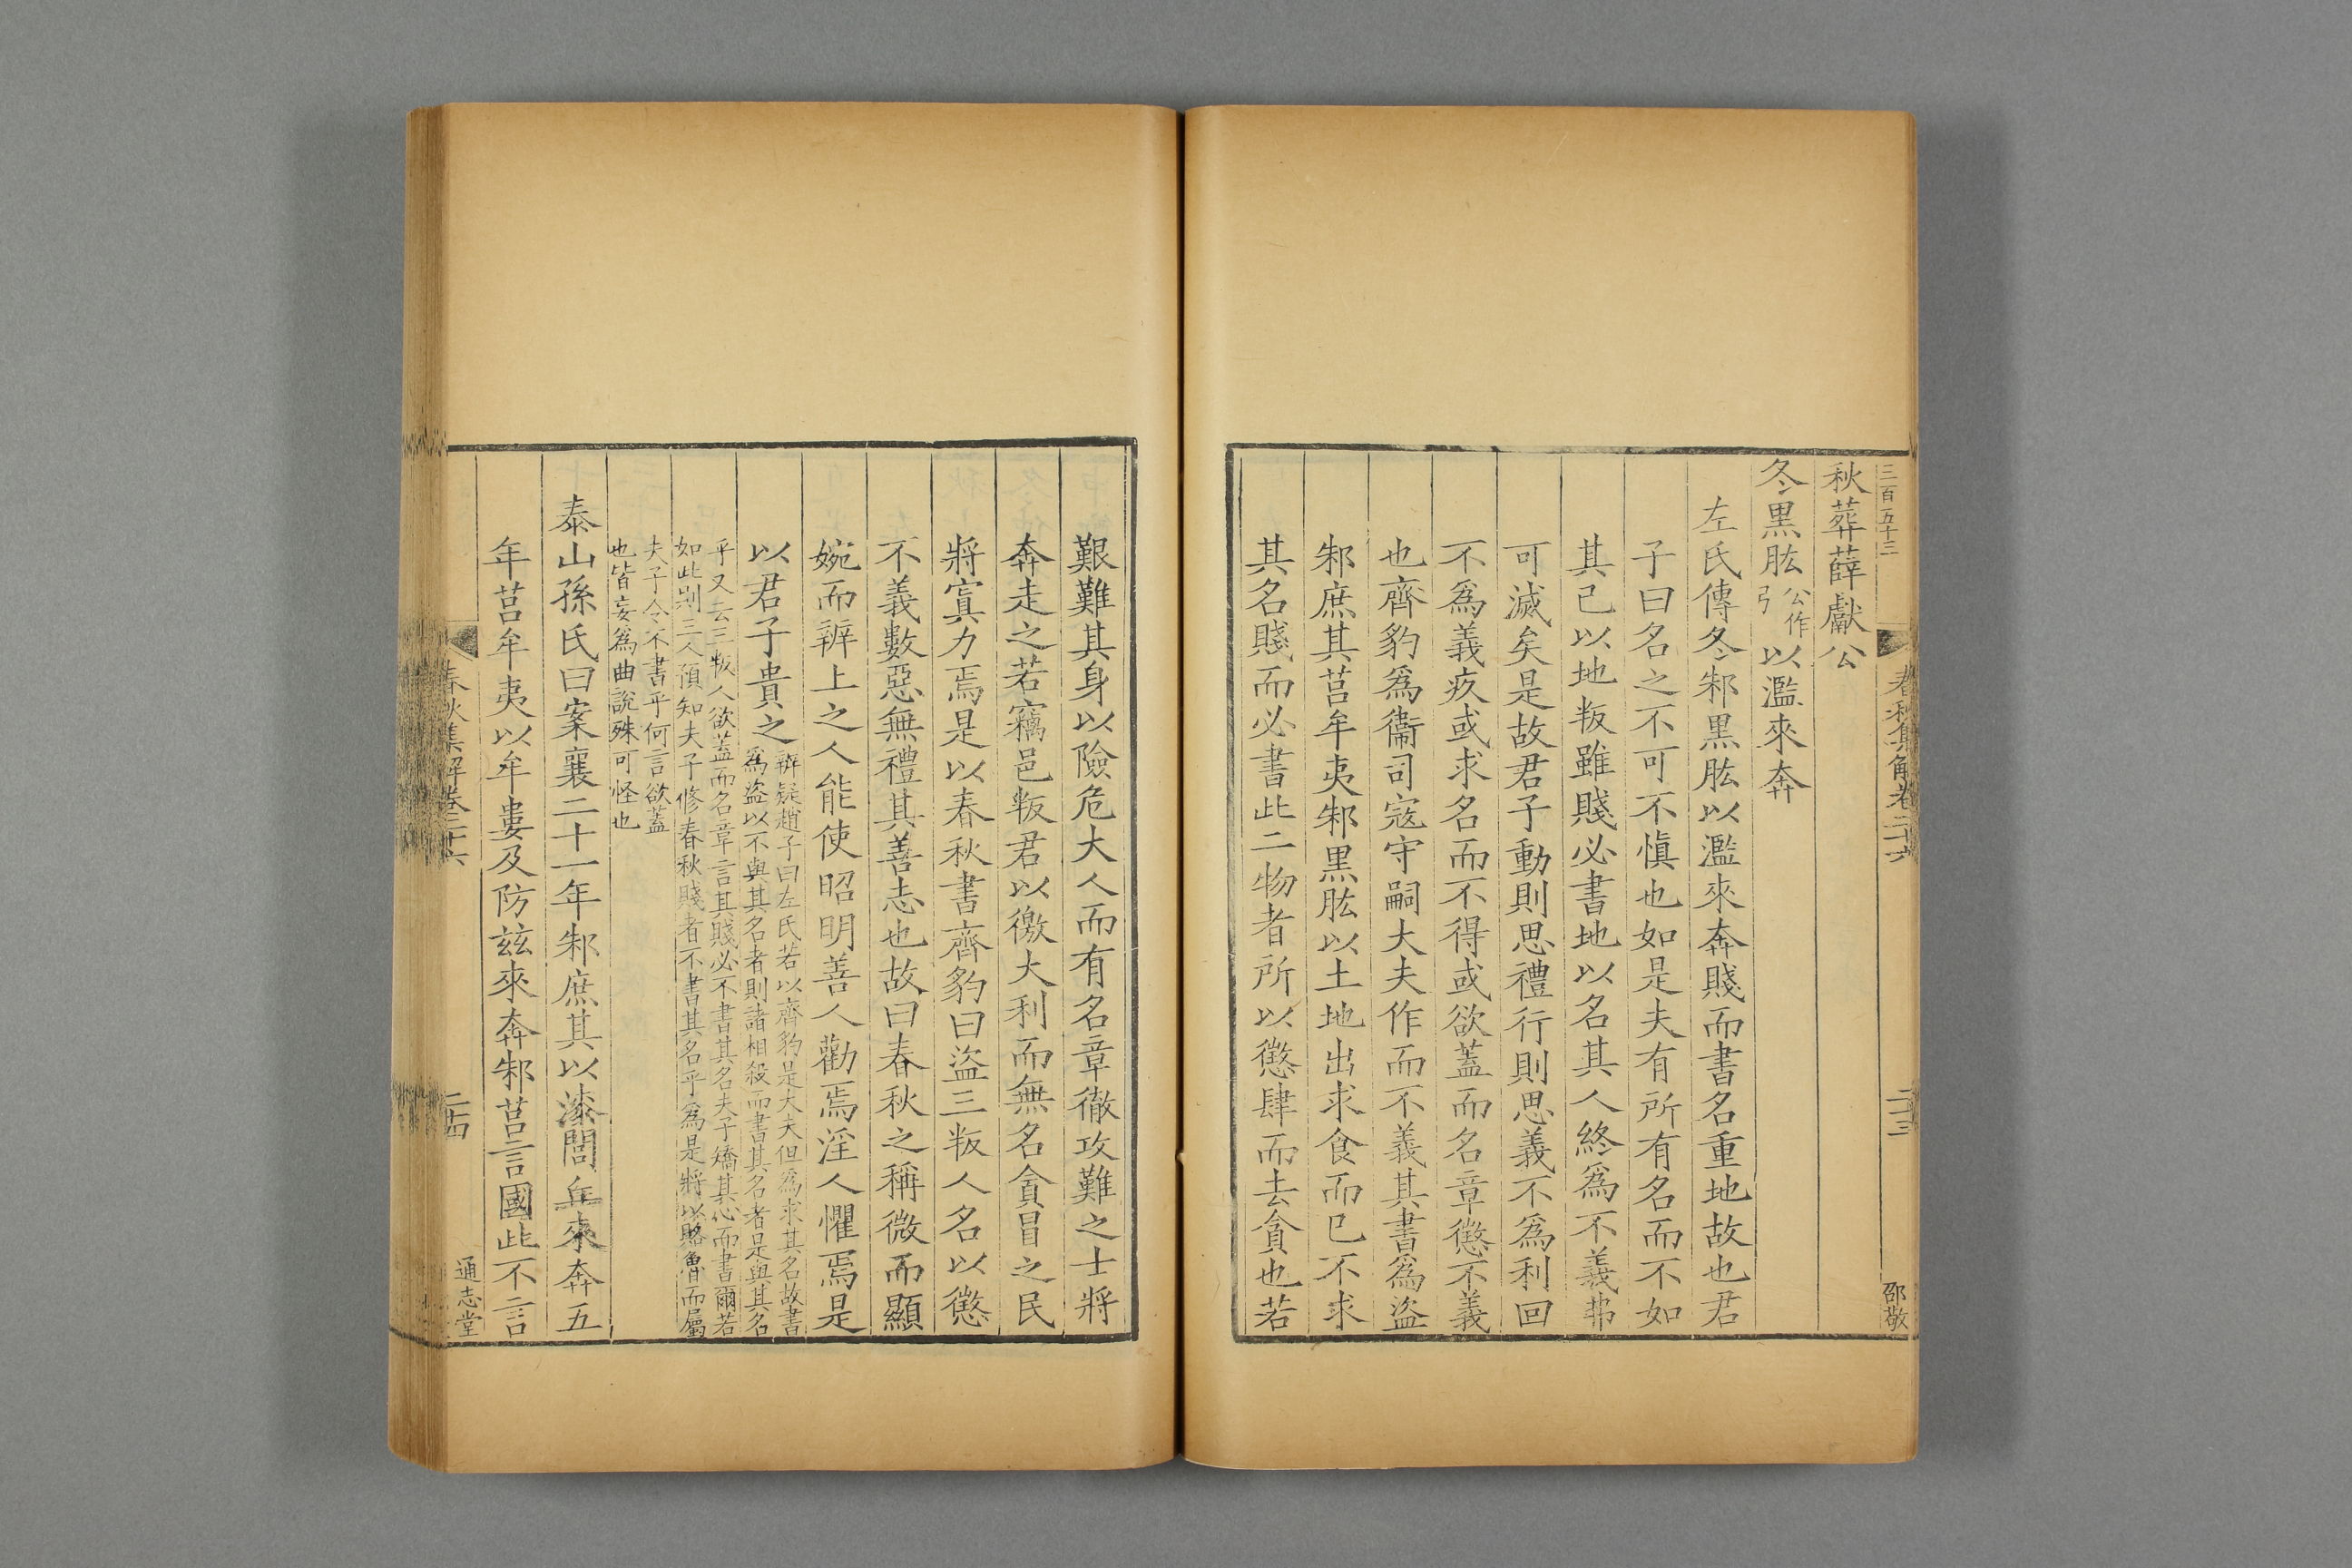 三百五十三 春秋集解卷二十六 二十三 邵敬
秋葬薛獻公
冬黑肱公作弓以濫來奔
左氏傳冬邾黑肱以濫來奔賤而書名重地故也君
子曰名之不可不慎也如是夫有所有名而不如
其已以地叛雖賤必書地以名其人終為不義弗
可滅矣是故君子動則思禮行則思義不為利回
不為義疚或求名而不得或欲蓋而名章懲不義
也齊豹為衞司寇守嗣大夫作而不義其書為盜
邾庶其莒牟夷邾黑肱以土地出求食而已不求
其名賤而必書此二物者所以懲肆而去貪也若
艱難其身以險危大人而有名章徹攻難之士將
奔走之若竊邑叛君以徼大利而無名貪冒之民
將寘力焉是以春秋書齊豹曰盜三叛人名以懲
不義數惡無禮其善志也故曰春秋之稱微而顯
婉而辨上之人能使昭明善人勸焉淫人懼焉是
以君子貴之辨疑趙子曰左氏若以齊豹是大夫但為求其名故書
為盜以不與其名者則諸相殺而書其名者是與其名
乎又云三叛人欲蓋而名章言其賤必不書其名夫子矯其心而書爾若
如此則三人預知夫子修春秋賤者不書其名乎為是將以賂魯而屬
夫子令不書乎何言欲蓋
也皆妄為曲說殊可怪也
泰山孫氏曰案襄二十一年邾庶其以漆閭丘來奔五
年莒牟夷以牟婁及防茲來奔邾莒言國此不言
春秋集解卷二十六 二十四 通志堂